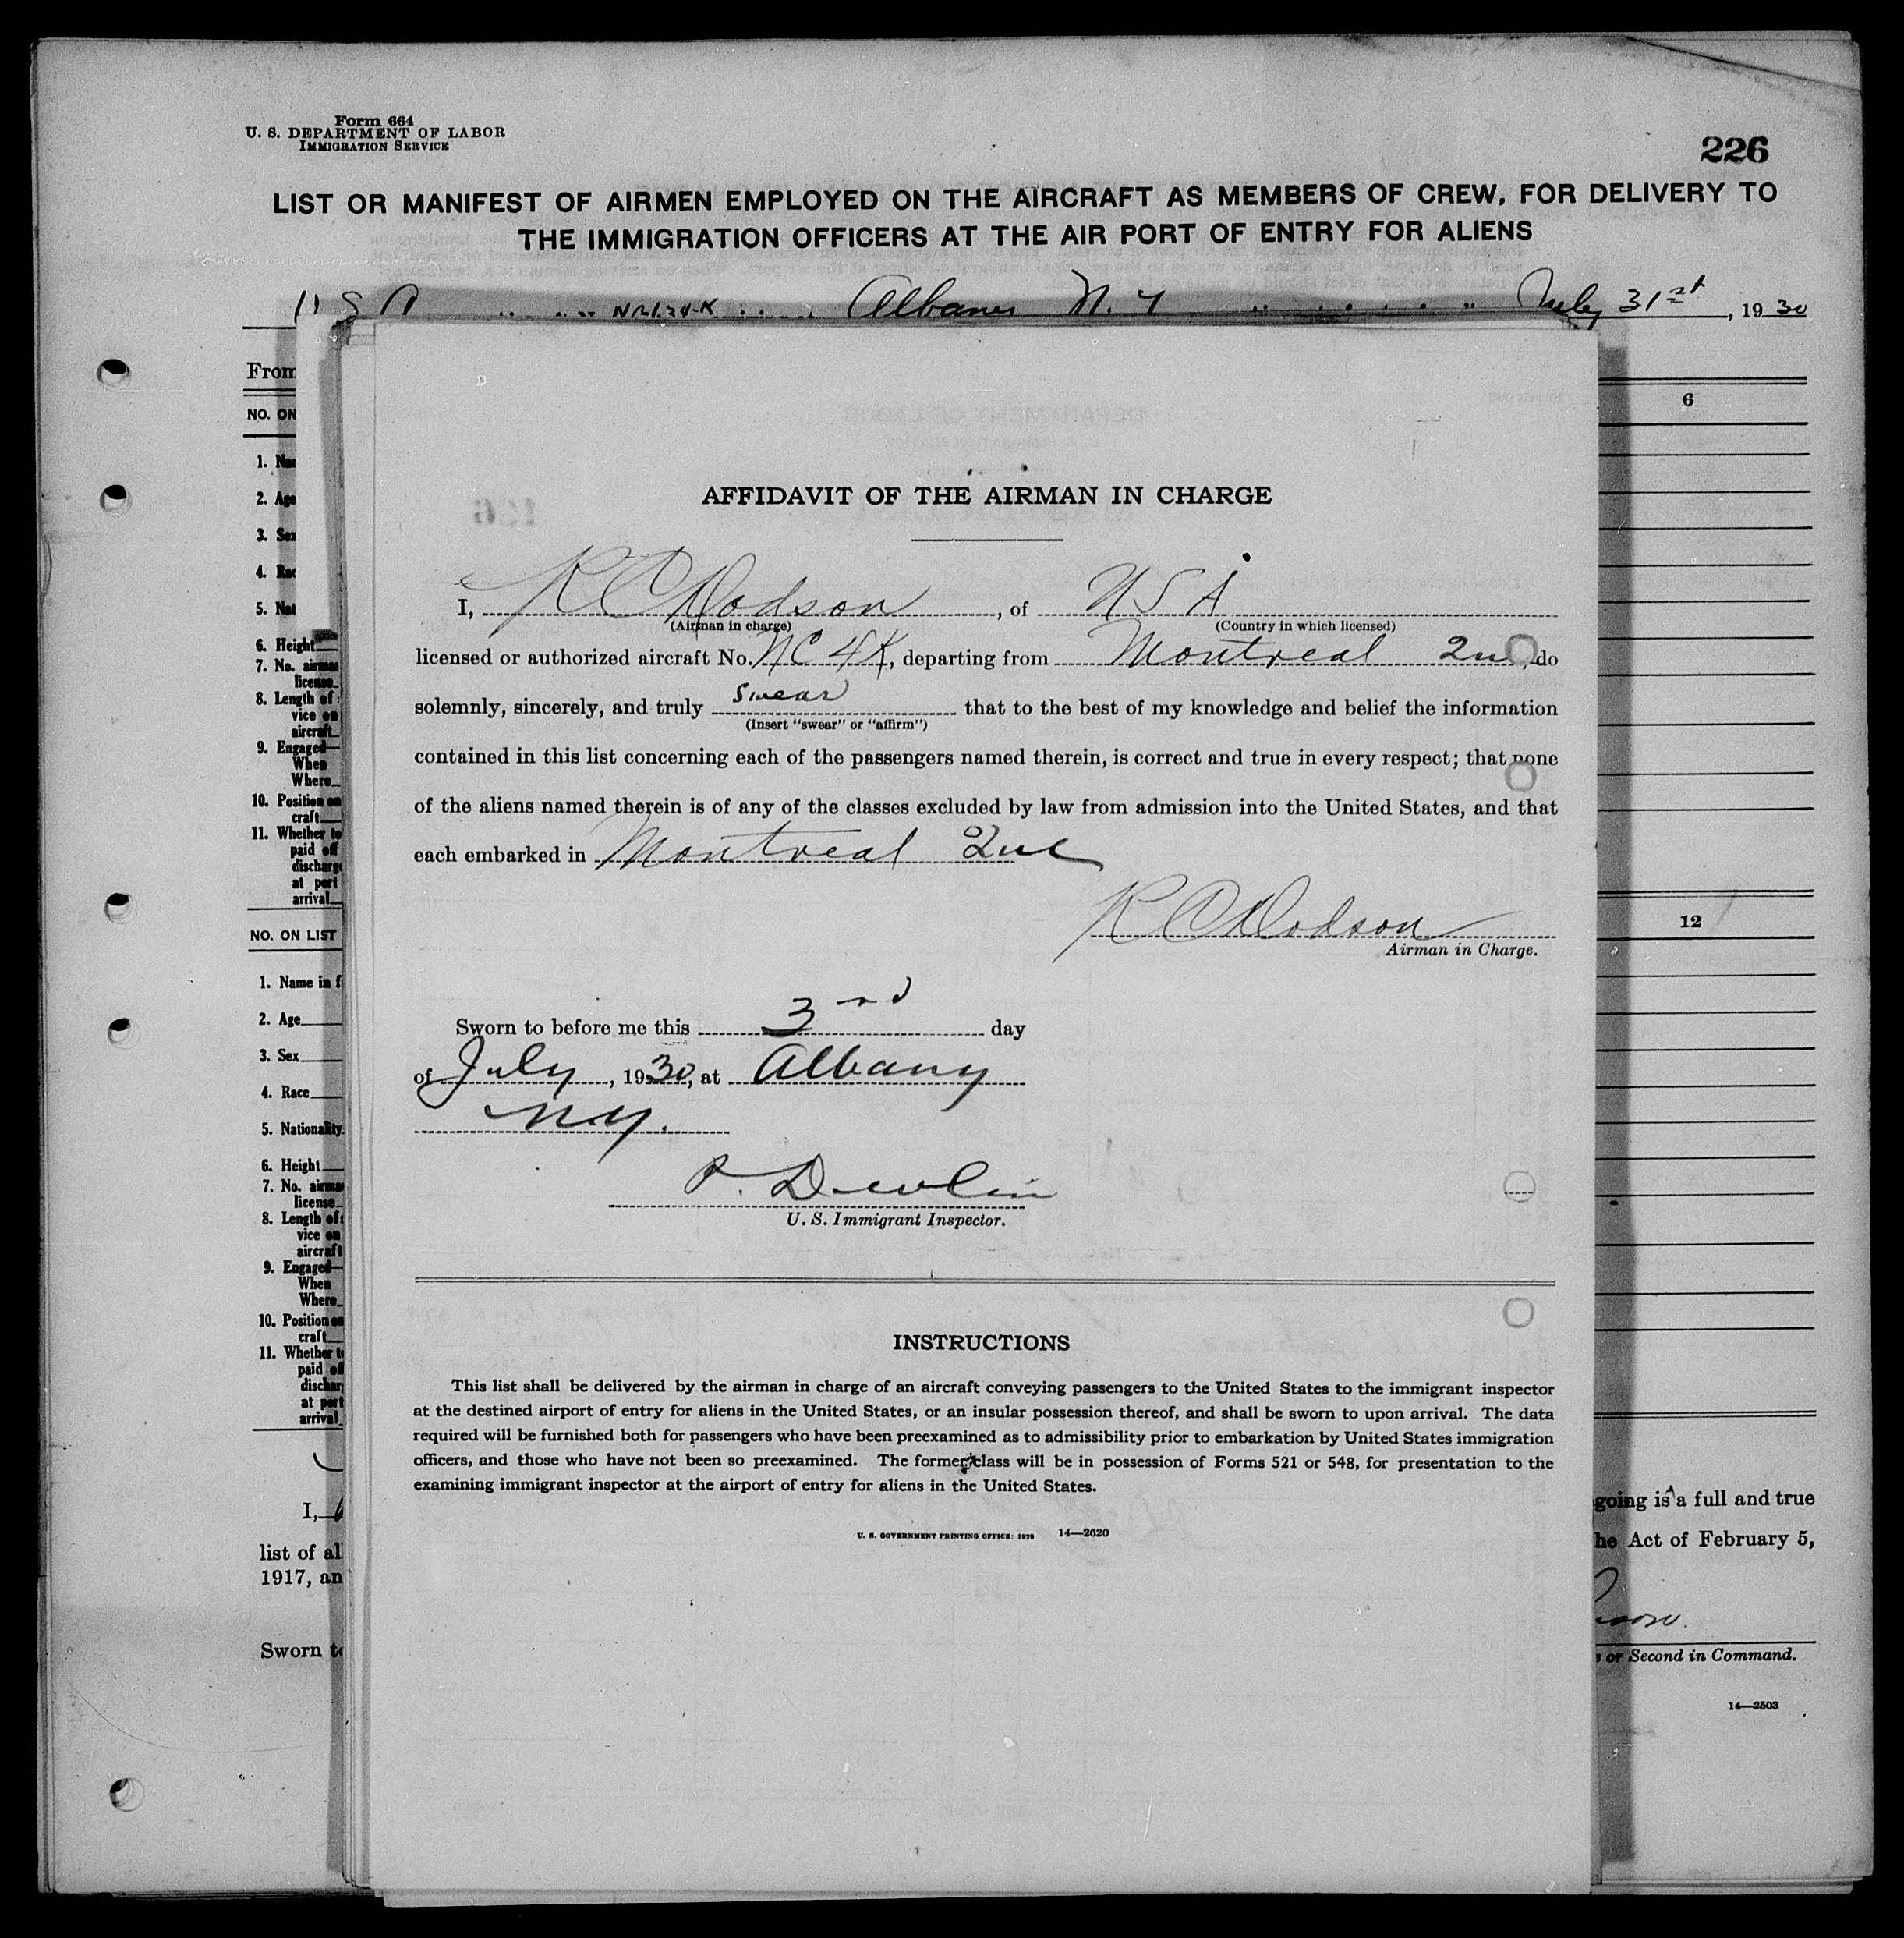 Form 664
U. S. DEPARTMENT OF LABOR
IMMIGRATION SERVICE
226
LIST OR MANIFEST OF AIRMEN EMPLOYED ON THE AIRCRAFT AS MEMBERS OF CREW, FOR DELIVERY TO
THE IMMIGRATION OFFICERS AT THE AIR PORT OF ENTRY FOR ALIENS
Albany N. Y July 31st, 1930
From
NO. ON
6
1. Na
2. Age
3. Sex
4. Rac
5. Nat
6. Height
7. No. airman
license
8. Length of
vice on
aircraft
9. Engaged
When
Where
10. Position on
craft
11. Whether to
paid off
discharge
at port
arrival
NO. ON LIST
12
1. Name in f
2. Age
3. Sex
4. Race
5. Nationality
6. Height
7. No. airma
license
8. Length of
vice on
aircraft
9. Engaged
When
Where
10. Position on
craft
11. Whether t
paid of
dischar
at port
arrival
I,
list of al
1917, an
Sworn to
AFFIDAVIT OF THE AIRMAN IN CHARGE
I, R C Dodson, of U S A
(Airman in charge) (Country in which licensed)
licensed or authorized aircraft No. NC 4K, departing from Montreal Que, do
solemnly, sincerely, and truly swear that to the best of my knowledge and belief the information
(Insert "swear" or "affirm")
contained in this list concerning each of the passengers named therein, is correct and true in every respect; that none
of the aliens named therein is of any of the classes excluded by law from admission into the United States, and that
each embarked in Montreal Que
R C Dodson
Airman in Charge.
Sworn to before me this 3rd day
of July, 1930, at Albany
N.Y.
P. Devlin
U. S. Immigrant Inspector.
INSTRUCTIONS
This list shall be delivered by the airman in charge of an aircraft conveying passengers to the United States to the immigrant inspector
at the destined airport of entry for aliens in the United States, or an insular possession thereof, and shall be sworn to upon arrival. The data
required will be furnished both for passengers who have been preexamined as to admissibility prior to embarkation by United States immigration
officers, and those who have not been so preexamined. The former class will be in possession of Forms 521 or 548, for presentation to the
examining immigrant inspector at the airport of entry for aliens in the United States.
U. S. GOVERNMENT PRINTING OFFICE: 1929 14—2620
going is a full and true
he Act of February 5,
s or Second in Command.
14—2503